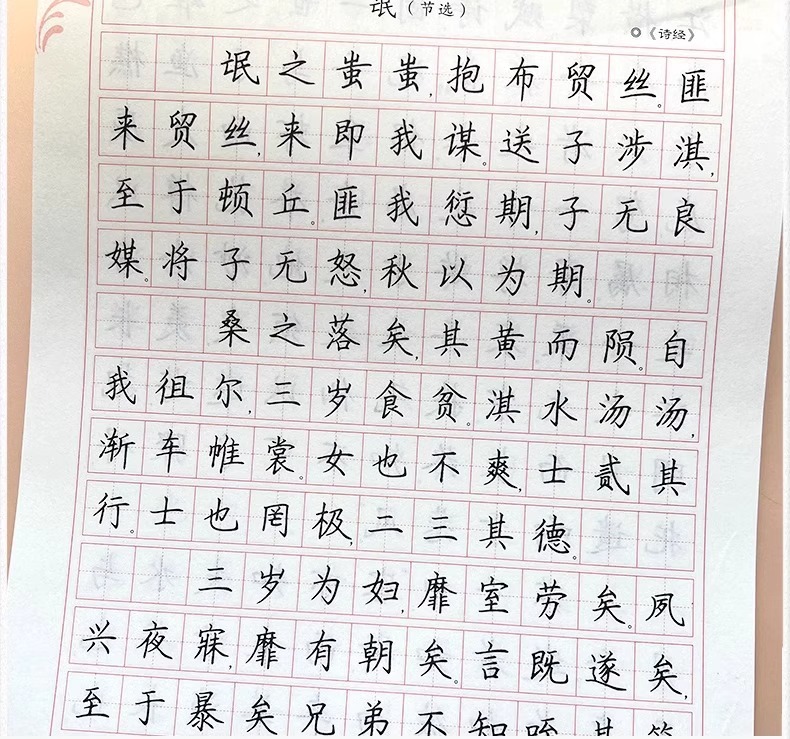 氓（节选）
◎《诗经》
氓之蚩蚩,抱布贸丝。匪
来贸丝,来即我谋。送子涉淇,
至于顿丘。匪我愆期,子无良
媒。将子无怒,秋以为期。
桑之落矣,其黄而陨。自
我徂尔,三岁食贫。淇水汤汤,
渐车帷裳。女也不爽,士贰其
行。士也罔极,二三其德。
三岁为妇,靡室劳矣。夙
兴夜寐,靡有朝矣。言既遂矣,
至于暴矣兄弟不知咥其笑